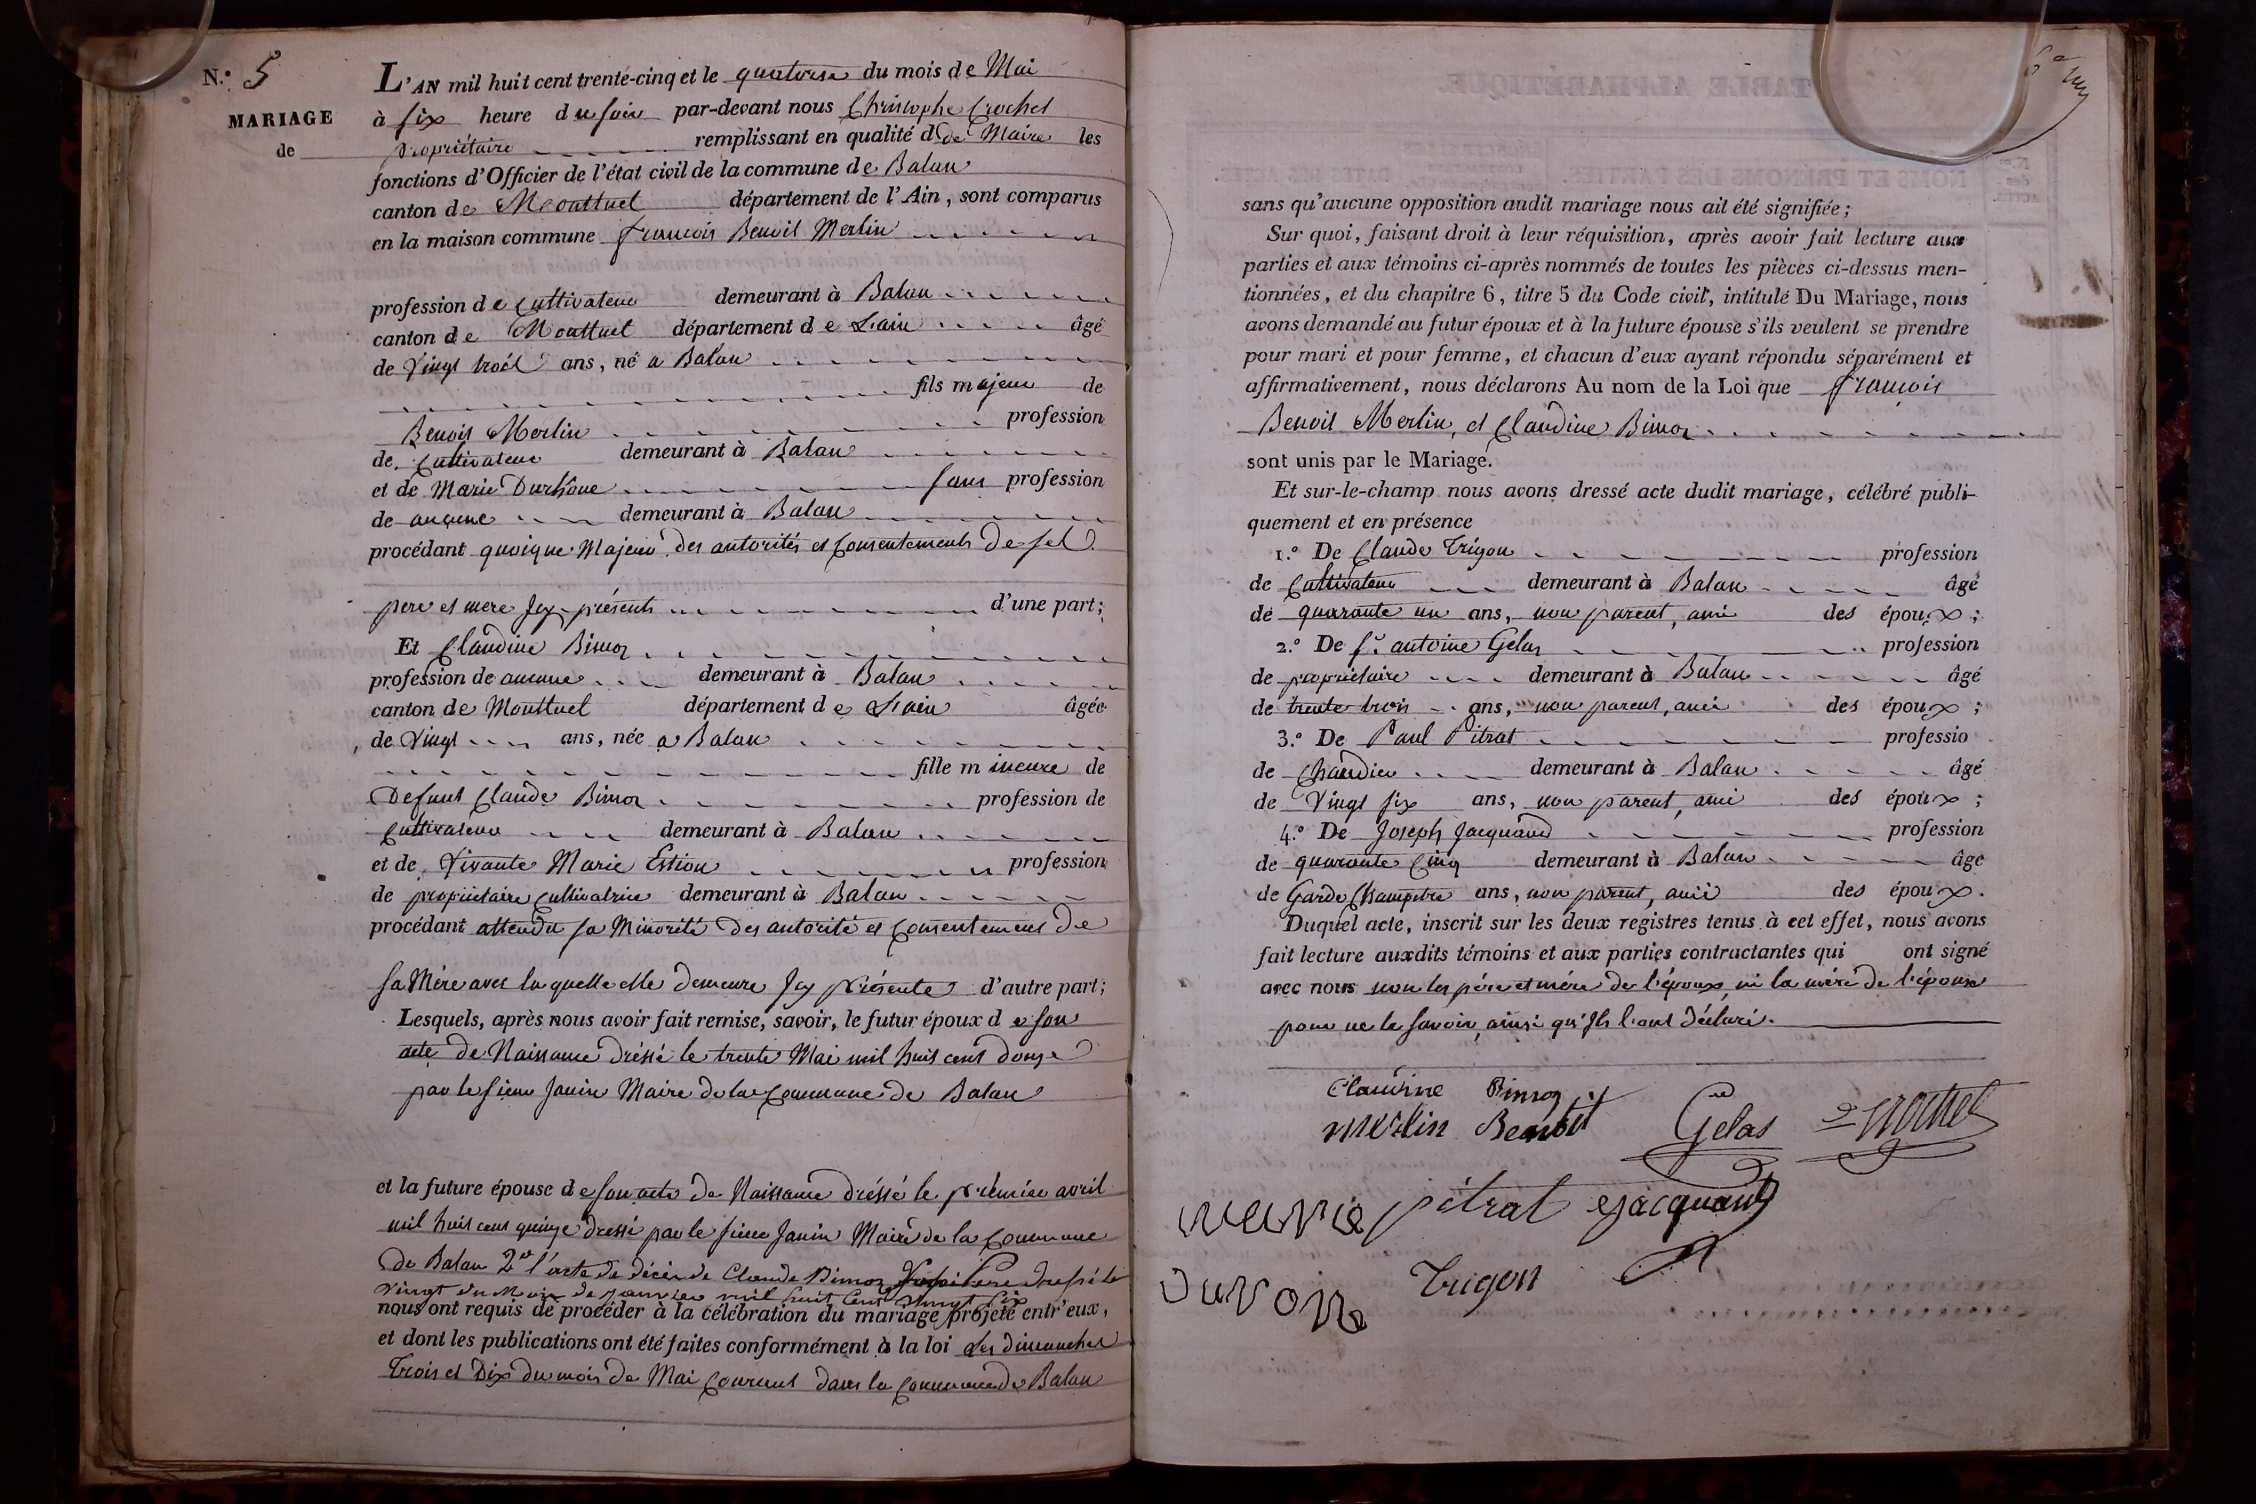 N.º 5
MARIAGE
de
L'AN mil huit cent trente-cinq et le quatorse du mois de Mai
à six heure du soir par-devant nous Christophe Crochet
propriétaire remplissant en qualité d de Maire les
fonctions d'Officier de l'état civil de la commune de Balan
canton de Montluel département de l'Ain, sont comparus
en la maison commune francois Benoit Merlin
profession de Cultivateur demeurant à Balan
canton de Montluel département de L'ain âgé
de Vingt trois ans, né a Balan
fils majeur de
Benoit Merlin profession
de Cultivateur demeurant à Balan
et de Marie Durhône sans profession
de aucune demeurant à Balan
procédant quoique Majeur des autorités et Consentements de ses
pere et mere Icy présents d'une part;
Et Claudine Bimoz
profession de aucune demeurant à Balan
canton de Montluel département de L'ain âgée
de Vingt ans, née a Balan
fille mineure de
Defunt Claude Bimoz profession de
Cultivateur demeurant à Balan
et de Vivante Marie Estion profession
de propriétaire Cultivatrice demeurant à Balan
procédant attendu sa Minorité des autorité et Consentement de
sa Mère avec laquelle elle demeure Icy présente d'autre part;
Lesquels, après nous avoir fait remise, savoir, le futur époux de son
acte de Naissance dréssé le trente Mai mil huit cent douze
par le sieur Janin Maire de la Commune de Balan
et la future épouse de son acte de Naissance dréssé le prémier avril
mil huit cent quinze dressé par le sieur Janin Maire de la Commune
de Balan 2º l'acte de décès de Claude Bimoz Père dressé le
vingt du Mois de janvier mil huit Cent vingt six
nous ont requis de procéder à la célébration du mariage projeté entr'eux,
et dont les publications ont été faites conformément à la loi les dimanches
Trois et Dix du mois de Mai Courant dans la Commune de Balan
sans qu'aucune opposition audit mariage nous ait été signifiée;
Sur quoi, faisant droit à leur réquisition, après avoir fait lecture aux
parties et aux témoins ci-après nommés de toutes les pièces ci-dessus men-
tionnées, et du chapitre 6, titre 5 du Code civil, intitulé Du Mariage, nous
avons demandé au futur époux et à la future épouse s'ils veulent se prendre
pour mari et pour femme, et chacun d'eux ayant répondu séparément et
affirmativement, nous déclarons Au nom de la Loi que francois
Benoit Merlin, et Claudine Bimoz
sont unis par le Mariage.
Et sur-le-champ nous avons dressé acte dudit mariage, célébré publi-
quement et en présence
1.º De Claude Trigon profession
de Cultivateur demeurant à Balan âgé
de quarante un ans, non parent, ami des époux;
2.º De f. antoine Gelas profession
de propriétaire demeurant à Balan âgé
de trente trois ans, non parent, ami des époux;
3.º De Paul Pitrat professio
de demeurant à Balan âgé
de Vingt six ans, non parent, ami des époux;
4.º De Joseph Jacquand profession
de quarante Cinq demeurant à Balan âge
de Garde Champetre ans, non parent, ami des époux.
Duquel acte, inscrit sur les deux registres tenus à cet effet, nous avons
fait lecture auxdits témoins et aux parties contractantes qui ont signé
avec nous non les père et mère de l'époux, ni la mère de l'épouse
pour ne le savoir, ainsi qu'ils l'ont déclaré.
Claudine Bimoz
merlin Benoit Gelas Crochet
marie pitrat Jacquand
Trigon